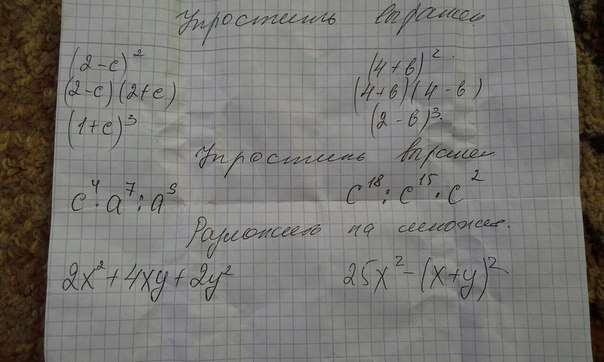 Упростить выражен
(2-c)²
(4+b)²
(2-c)(2+c)
(4+b)(4-b)
(1+c)³
(2-b)³
Упростить выражен
c⁴·a⁷:a⁵
c¹⁸:c¹⁵·c²
Разложить на множ.
2x²+4xy+2y²
25x²-(x+y)²